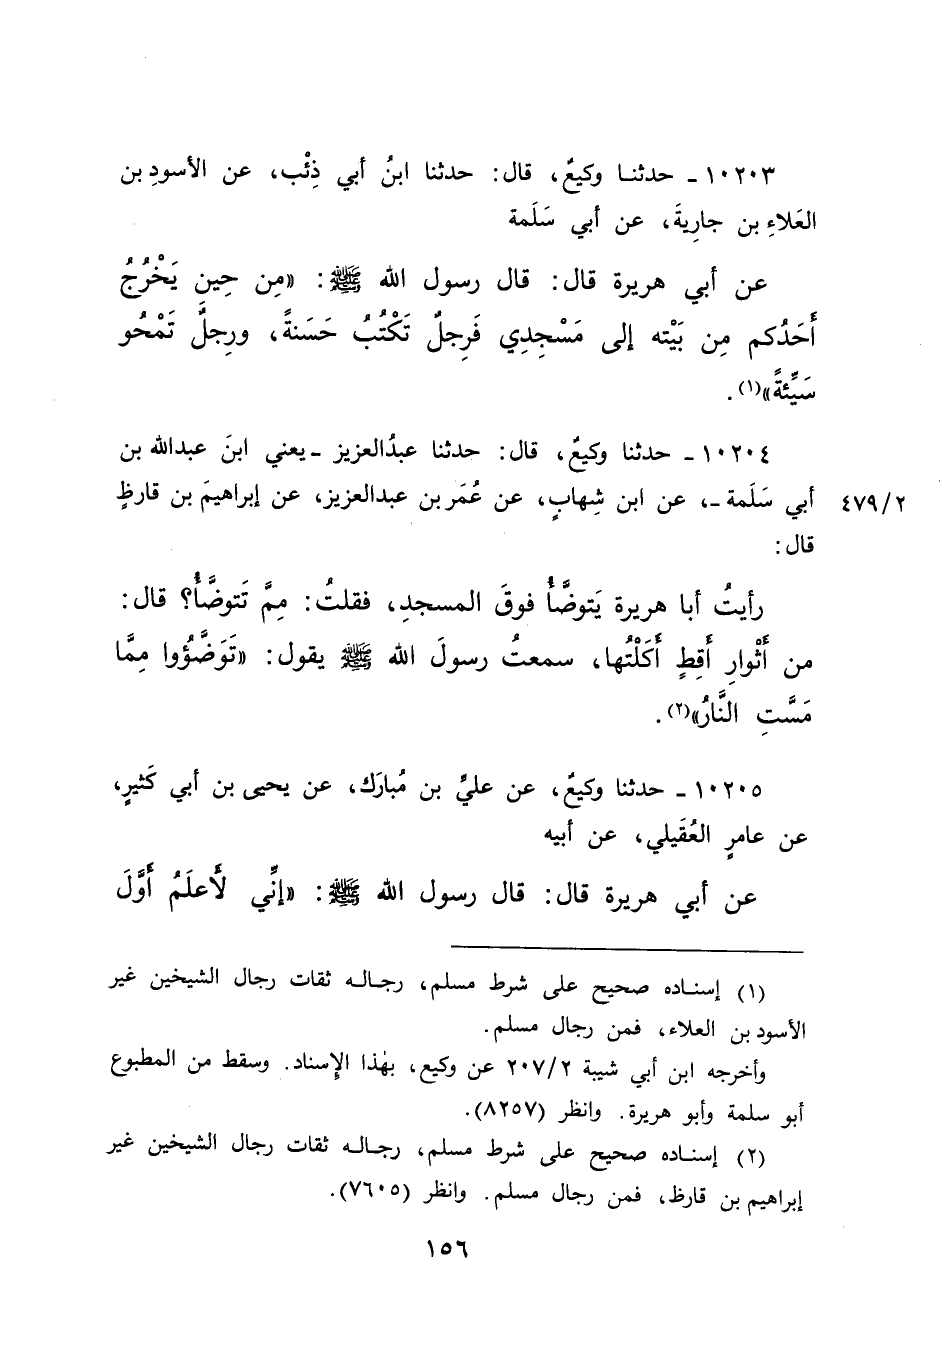 ١٠٢٠٣ - حدثنا وكيعٌ، قال: حدثنا ابنُ أبي ذِئْب، عن الأسودِ بن
العَلاءِ بن جارِيةَ، عن أبي سَلَمة
عن أبي هريرة قال: قال رسول الله ﷺ: «مِن حِينِ يَخْرُجُ
أَحَدُكم مِن بَيْتِه إلى مَسْجِدِي فَرِجلٌ تَكْتُبُ حَسَنةً، ورِجلٌ تَمْحُو
سَيِّئةً»(١).
١٠٢٠٤ - حدثنا وكيعٌ، قال: حدثنا عبدُالعزيز - يعني ابنَ عبدالله بن
أبي سَلَمة -، عن ابن شِهابٍ، عن عُمَر بن عبدالعزيز، عن إبراهيمَ بن قارظٍ ٤٧٩/٢
قال:
رأيتُ أبا هريرة يَتوضَّأُ فوقَ المسجدِ، فقلتُ: مِمَّ تَتوضَّأُ؟ قال:
من أَثْوارِ أَقِطٍ أَكَلْتُها، سمعتُ رسولَ الله ﷺ يقول: «تَوَضَّؤُوا مِمَّا
مَسَّتِ النَّارُ»(٢).
١٠٢٠٥ - حدثنا وكيعٌ، عن عليِّ بن مُبارَك، عن يحيى بن أبي كَثيرٍ،
عن عامرٍ العُقَيلي، عن أبيه
عن أبي هريرة قال: قال رسول الله ﷺ: «إنِّي لَأَعلَمُ أَوَّلَ
(١) إسناده صحيح على شرط مسلم، رجاله ثقات رجال الشيخين غير
الأسود بن العلاء، فمن رجال مسلم.
وأخرجه ابن أبي شيبة ٢٠٧/٢ عن وكيع، بهٰذا الإسناد. وسقط من المطبوع
أبو سلمة وأبو هريرة. وانظر (٨٢٥٧).
(٢) إسناده صحيح على شرط مسلم، رجاله ثقات رجال الشيخين غير
إبراهيم بن قارظ، فمن رجال مسلم. وانظر (٧٦٠٥).
١٥٦